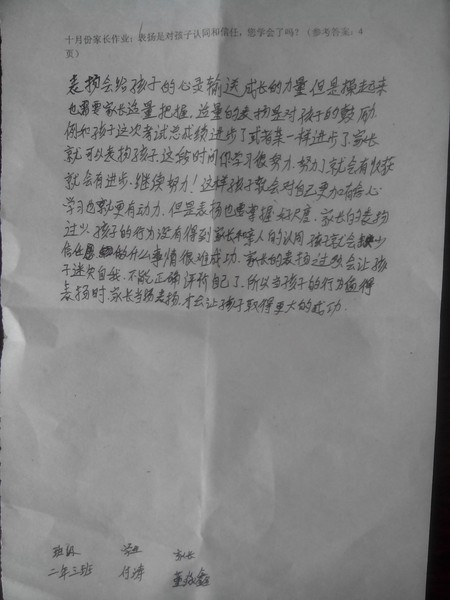 十月份家长作业：表扬是对孩子认同和信任，您学会了吗？（参考答案：4
页）
表扬会给孩子的心灵输送成长的力量但是操起来
也需要家长适量把握，适量的表扬是对孩子的鼓励
例如孩子这次考试总成绩进步了或者某一样进步了家长
就可以表扬孩子这段时间你学习很努力，努力了就会有收获
就会有进步，继续努力！这样孩子就会对自己更加有信心
学习也就更有动力，但是表扬也要掌握好尺度，家长的表扬
过少，孩子的行为没有得到家长和亲人的认同，孩子就会缺少
信任 的什么事情很难成功，家长的表扬过多会让孩
子迷失自我，不能正确评价自己了，所以当孩子的行为值得
表扬时，家长当场表扬，才会让孩子取得更大的成功．
班级 学生 家长
二年三班 付涛